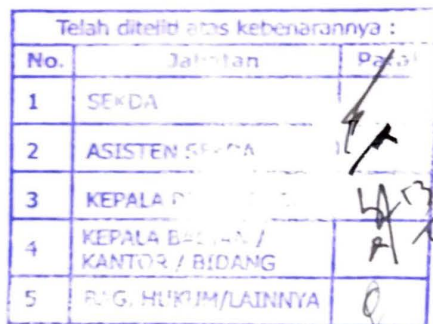 Telah diteliti atas kebenarannya :
No. Jabatan Paraf
1 SEKDA
2 ASISTEN SEKDA
3 KEPALA
4 KEPALA BAGIAN /
KANTOR / BIDANG
5 BAG. HUKUM/LAINNYA